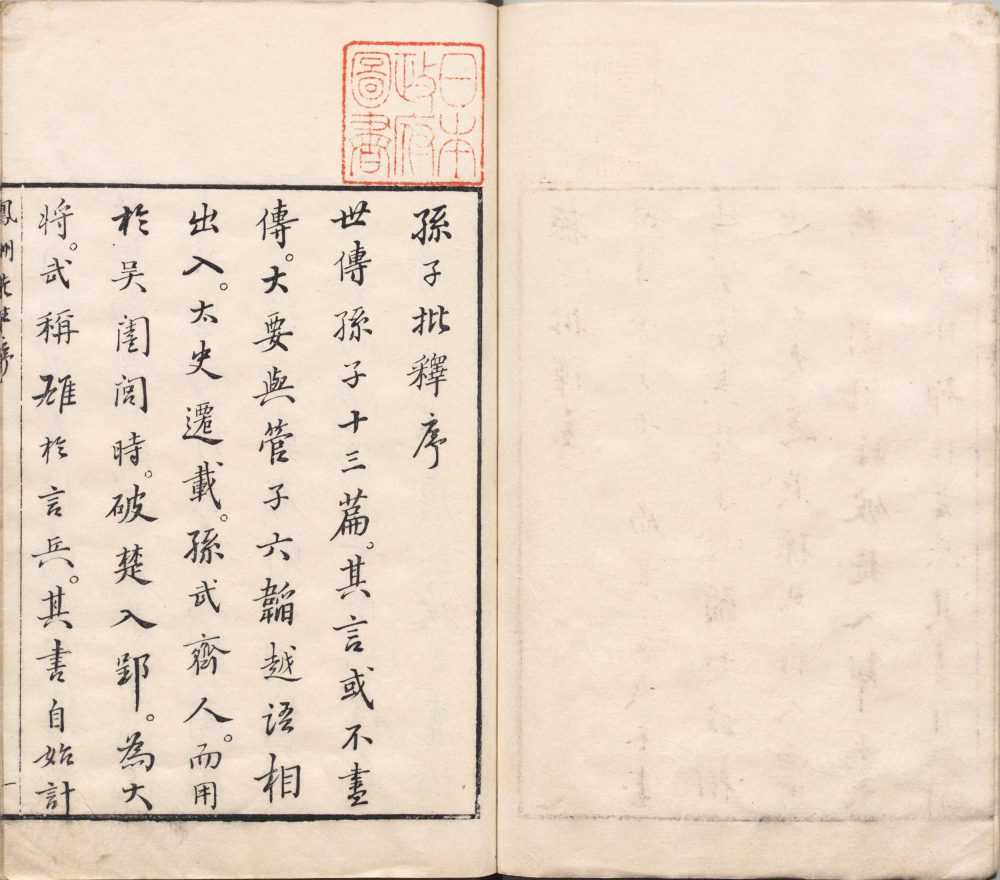 日本
政府
圖書
孫子批釋序
世傳孫子十三篇。其言或不盡
傳。大要與管子六韜越语相
出入。太史遷載。孫武齊人。而用
於吴闔閭時。破楚入郢。為大
将。武稱雄於言兵。其書自始計
鳳洲
一